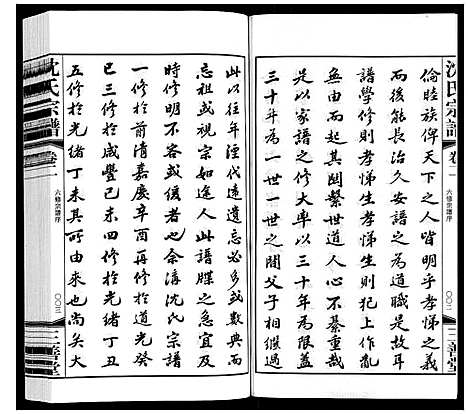 沈氏宗譜
卷二
六修宗譜序
〇〇二
三善堂
倫睦族俾天下之人皆明乎孝悌之義
而後能長治久安譜之設職是故耳
譜學修則孝悌生孝悌生則犯上作亂
無由而起其關繫世道人心不綦重哉
是以家譜之修大率以三十年為限蓋
三十年為一世一世之間父子相繼過
此以往湮代遠遺忘必多或數典而
忘祖或視宗如途人此譜牒之急宜及
時修明不容或緩者也余溝沈氏宗譜
一修於前清嘉慶辛酉再修於道光癸
巳三修於咸豐己未四修於光緒丁丑
五修於光緒丁未其可由來也尚矣大
沈氏宗譜
卷二
六修宗譜序
〇〇三
三善堂